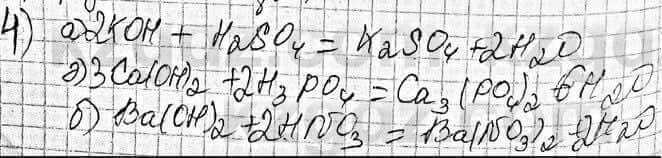 4) а) 2KOH + H₂SO₄ = K₂SO₄ + 2H₂O
в) 3Ca(OH)₂ + 2H₃PO₄ = Ca₃(PO₄)₂ 6H₂O
б) Ba(OH)₂ + 2HNO₃ = Ba(NO₃)₂ + 2H₂O